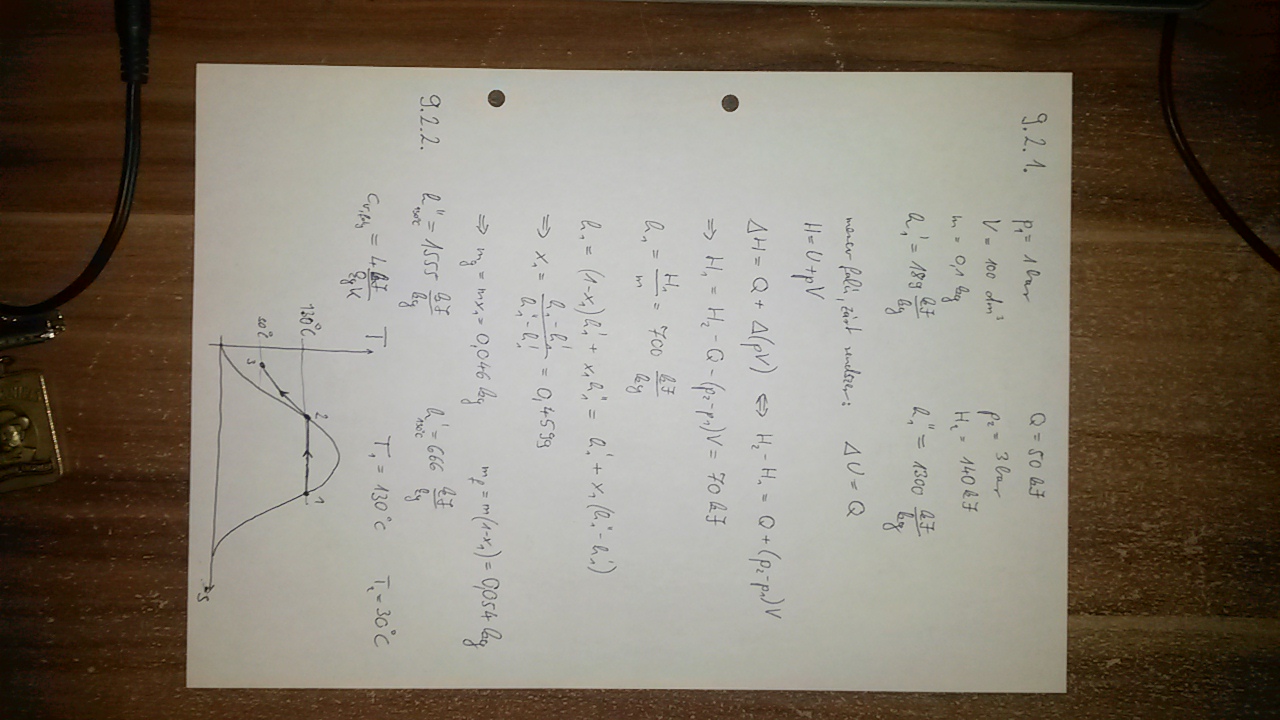 9.2.1. p₁ = 1 bar Q = 50 kJ
V = 100 dm³ p₂ = 3 bar
m = 0,1 kg H₂ = 140 kJ
h₁' = 189 kJ/kg h₁'' = 1300 kJ/kg
merev falú, zárt rendszer: ΔU = Q
H = U + pV
ΔH = Q + Δ(pV) ⇔ H₂ - H₁ = Q + (p₂-p₁)V
⇒ H₁ = H₂ - Q - (p₂-p₁)V = 70 kJ
h₁ = H₁/m = 700 kJ/kg
h₁ = (1-x₁)h₁' + x₁h₁'' = h₁' + x₁(h₁''-h₁')
⇒ x₁ = (h₁-h₁')/(h₁''-h₁') = 0,4599
⇒ m_g = mx₁ = 0,046 kg m_f = m(1-x₁) = 0,054 kg
9.2.2. h'' = 1555 kJ/kg h' = 666 kJ/kg
= 4 kJ/kgK T₁ = 130°C = 30°C
T
130°C 2 1
3
s